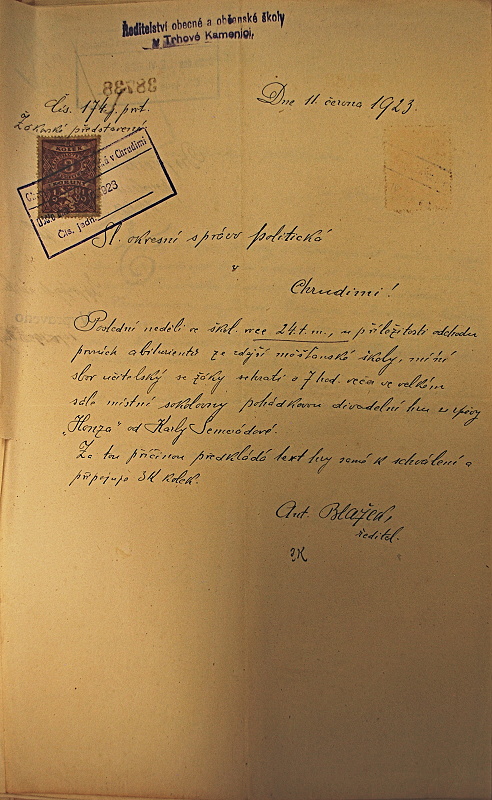 Ředitelství obecné a občanské školy
v Trhové Kamenici,
38738
Čís. 174/j. prt.
Dne 11. června 1923.
Žákovské představení
KOLEK
3
v Chrudimi
1923
Čís. jedn.
Sl. okresní správo politická
v
Chrudimi!
Poslední neděli ve škol. roce 24. t. m., u příležitosti odchodu
prvních abiturientů ze zdejší měšťanské školy, míní
sbor učitelský se žáky sehráti o 7 hod. večer ve velkém
sále místní sokolovny pohádkovou divadelní hru
„Honza" od Karly
Za tou příčinou předkládá text hry
k schválení a
připojuje 3K kolek.
Ant. Blažek,
ředitel.